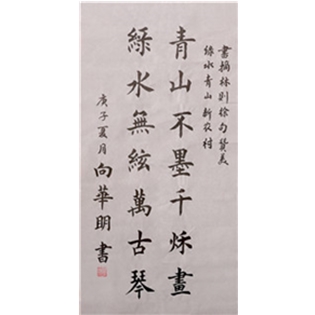 書摘林則徐句贊美
綠水青山新农村
青山不墨千秌畫
綠水無絃萬古琴
庚子夏月
向華明書